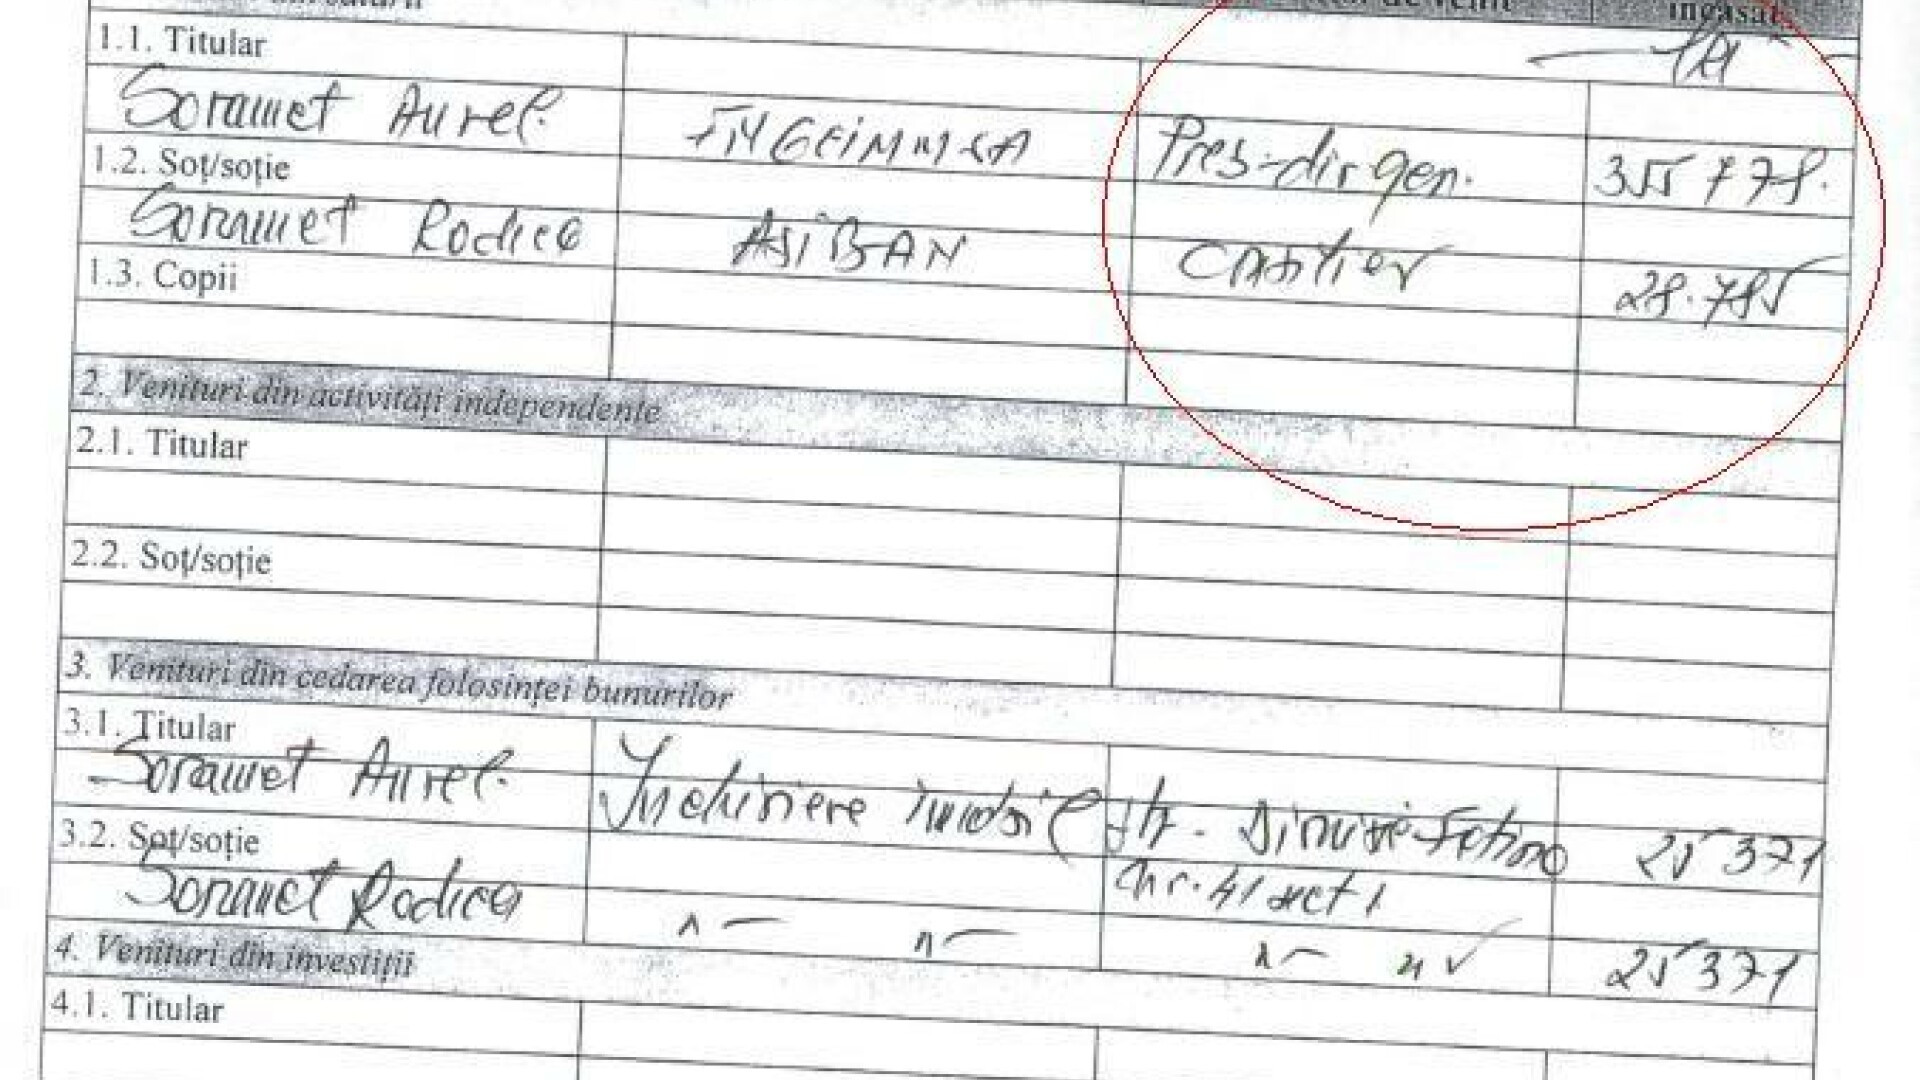 de venit
încasat
1.1. Titular
Soramet Aurel. Pres-dir gen. 355778.
1.2. Soț/soție
Soramet Rodica ASIBAN Casier 28.785
1.3. Copii
2. Venituri din activități independente
2.1. Titular
2.2. Soț/soție
3. Venituri din cedarea folosinței bunurilor
3.1. Titular
Soramet Aurel. Inchiriere imobil str. 25371
3.2. Soț/soție
nr. 41 sect 1
Soramet Rodica 25371
4. Venituri din investiții
4.1. Titular